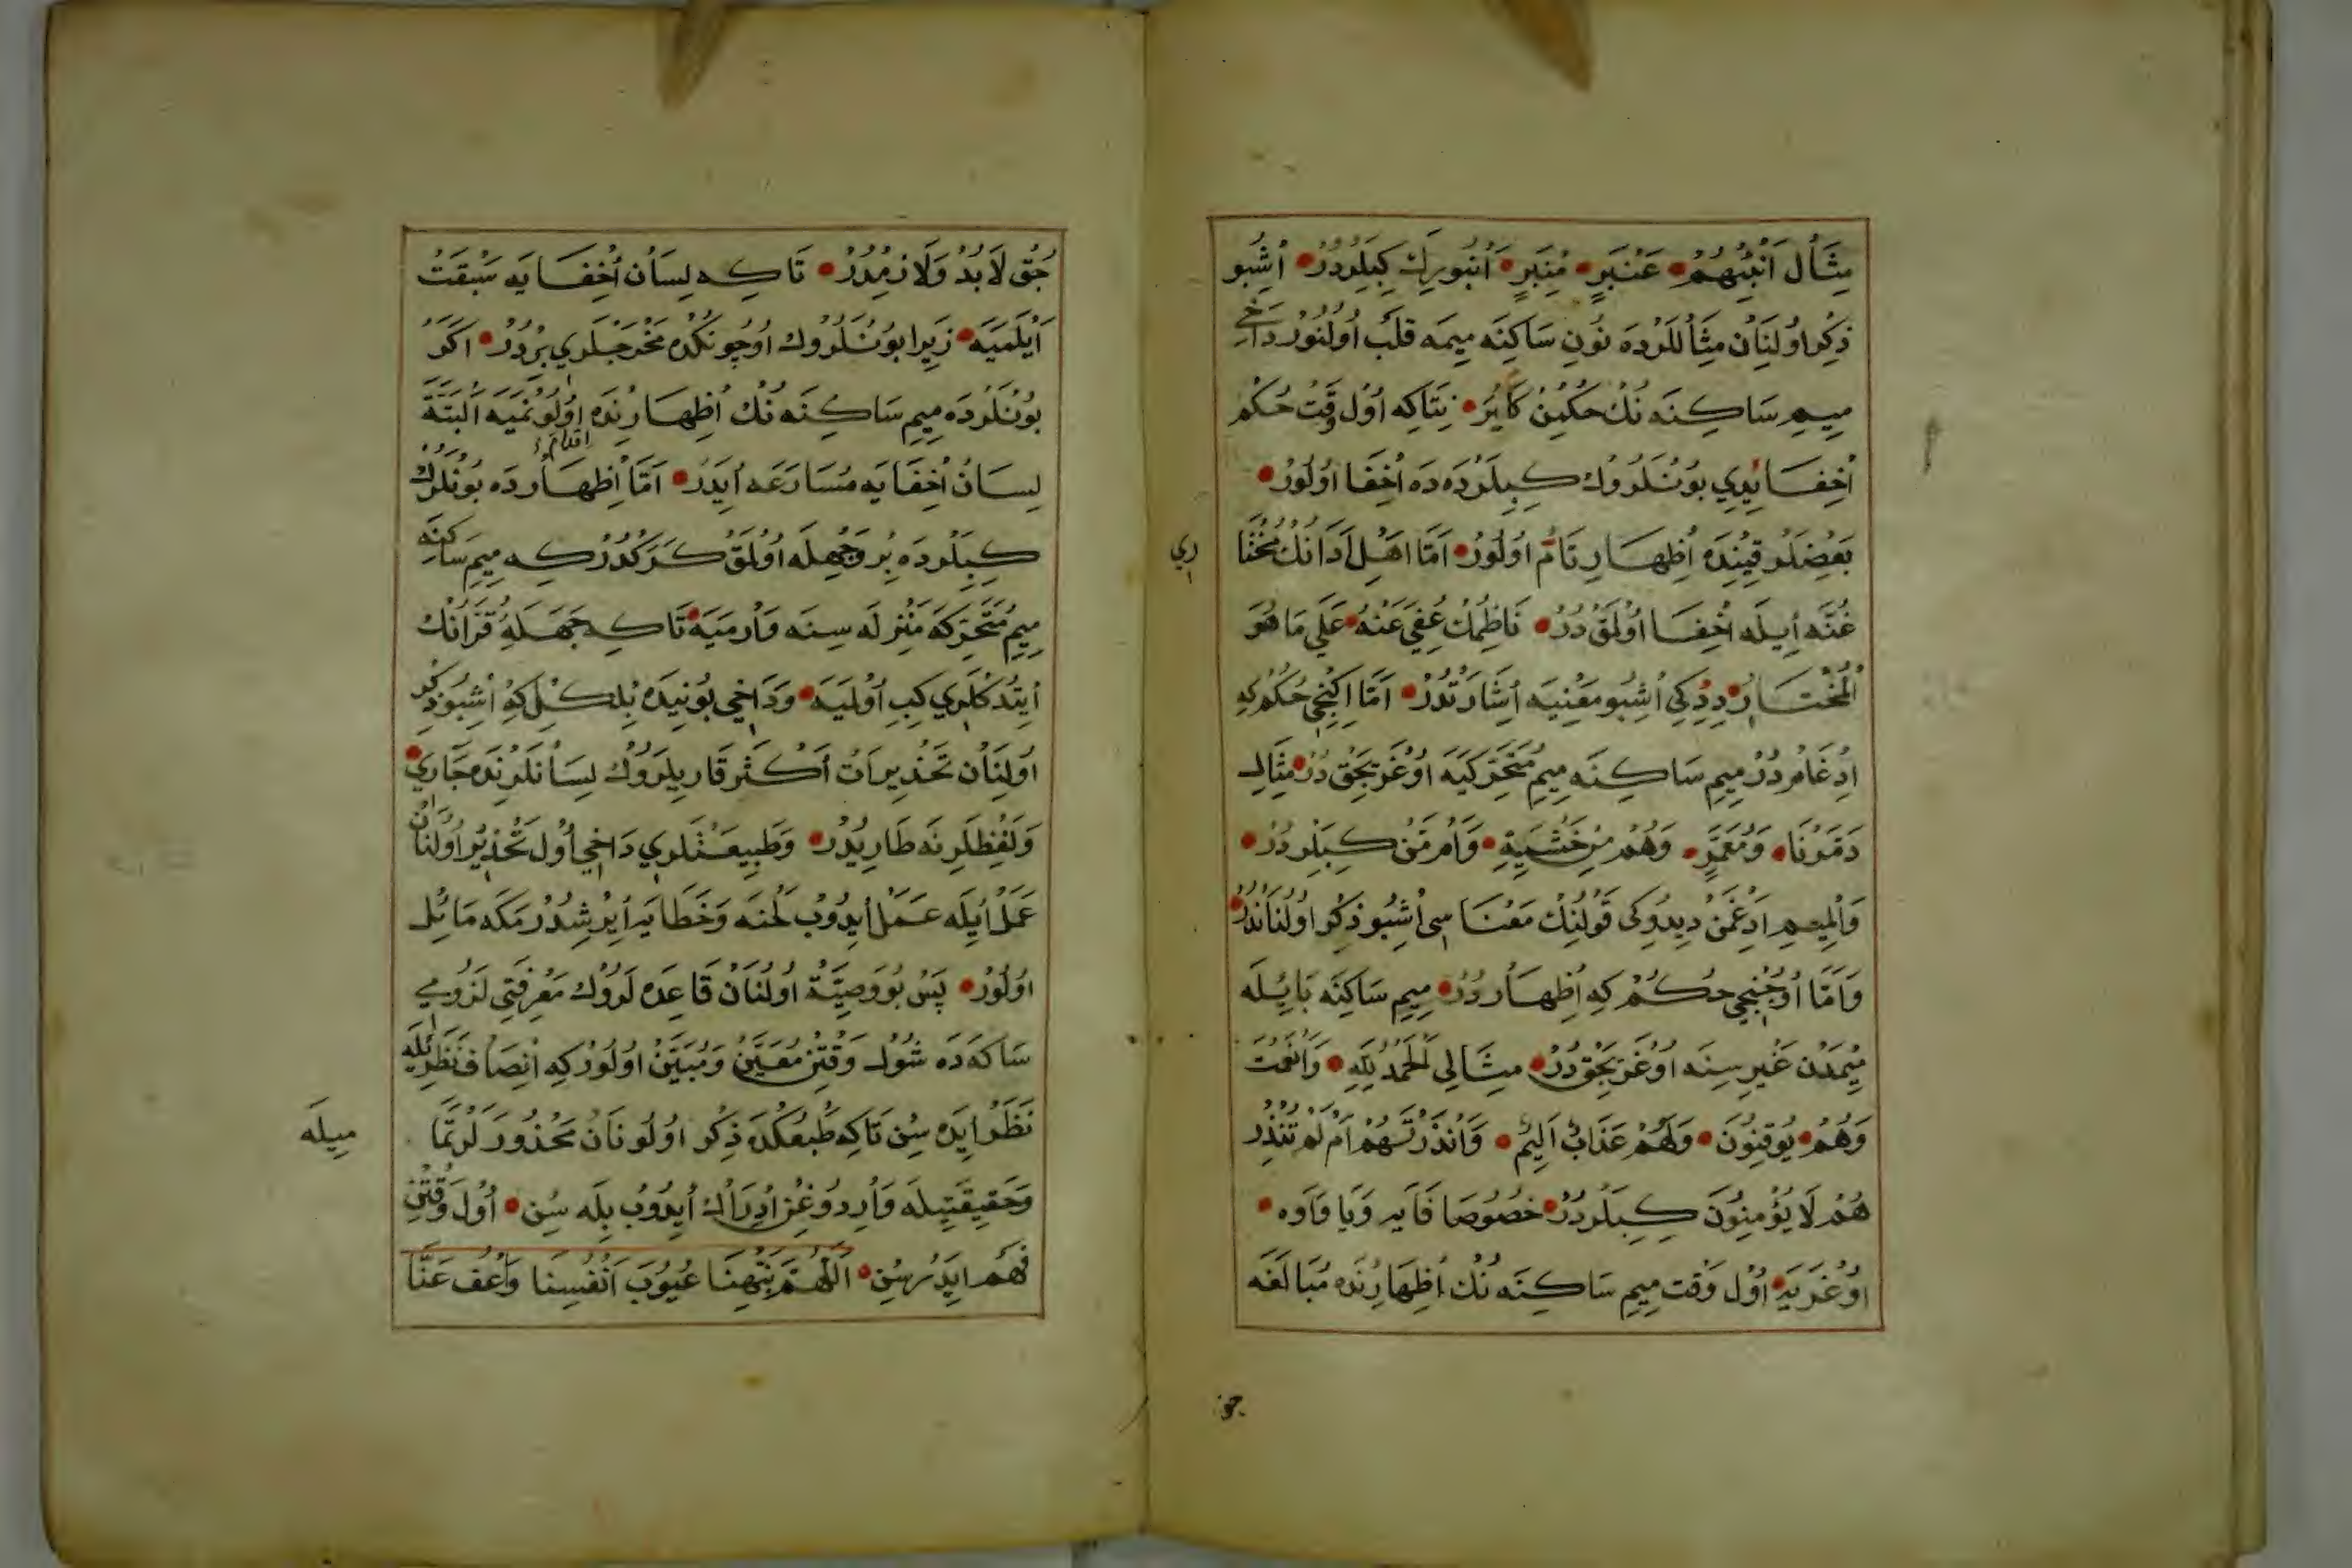 مِثَال اَنْبِئْهُمْ • عَنْبَرٍ • مِنْبَرٍ • اَنْبُوبِرِكَ كِبِلَرْدُرْ • اُشْبُو
ذِكْر اُولِنَانْ مِثَالْلَرْدَه نُونِ سَاكِنَه مِيمَه قَلْب اُولُنُورْ دَاخِي
مِيمِ سَاكِنَه نُكْ حُكْمِنْ كَايُرَ • نِتَاكِه اُول وَقْت حُكْم
اُخِفَا يِدِي بُونْلَرُوكْ كِبِلَرْدَه دَه اُخِفَا اُولُورْ •
بَعْضِلَرْ قِتِنْدَه اُظِهَارِ تَامْ اُولُورْ • اَمَّا اَهْلِ اَدَانُكْ مُخْتَا
رِي
غُنَّه اُيِلَه اُخِفَا اُولْمَقْ دُرْ • نَاظِمُكْ عُفِيَ عَنْهُ • عَلَي مَا هُوَ
الْمُخْتَارُ • دِدِكِي اُشْبُو مَعْنِيَه اُشَارَتْدُرْ • اَمَّا اِكِنْجِي حُكْم كِه
اِدْغَامْدُرْ مِيمِ سَاكِنَه مِيمِ مُتَحَرِّكَيَه اُوغْرَيَجَقْ دُرْ • مِثَالِ
دَمَّرْنَا • وَمُعَمَّرٍ • وَهُمْ مِنْ خَشْيَةِ • وَاَمْ مَنْ كِبِلَرْدُرْ •
وَالْمِيمِ اِدْغَمَنْ دِيدُوكِي قَوْلِنُكْ مَعْنَاسِي اُشْبُو ذِكْر اُولُنَانْدُرْ •
وَاَمَّا اُوجُنْجِي حُكُمْ كِه اُظِهَارْدُرْ • مِيمِ سَاكِنَه بَايُلَه
مِيمَدَنْ غَيْرِسِنَه اُوغْرَيَجَقْ دُرْ • مِثَالِي اَلْحَمْدُ لِلّٰهِ • وَاَنْعَمْتَ
وَهُمْ • يُوقِنُونَ • وَلَهُمْ عَذَابٌ اَلِيمٌ • وَاَنْذَرْتَهُمْ اَمْ لَمْ تُنْذِرْ
هُمْ لَا يُؤْمِنُونَ كِبِلَرْدُرْ • خُصُوصَا فَايَه وَيَا وَاوَه •
اُوغْرَيَه • اُوْل وَقْت مِيمِ سَاكِنَه نُكْ اُظِهَارِنْدَه مُبَالَغَه
جق
جَقْ لَا بُدْ وَلَازِمْدُرْ • تَا كِه لِسَانْ اُخِفَا يَه سَبَقَتْ
اَيْلَمَيَه • زِيرَا بُونْلَرُوكْ اُوچُونْكُدَه مَخْرَجْلَرِي بِرْدُرْ • اَكَرْ
بُونْلَرْدَه مِيمِ سَاكِنَه نُكْ اُظِهَارِنْدَه اُولُونْمَيَه اَلْبَتَّة
اقدام
لِسَانْ اُخِفَا يَه مُسَارَعَه اُيِدَرْ • اَمَّا اُظِهَارْدَه بُونْلَرُكْ
كِبِلَرْدَه بِرْ وَجْهِلَه اُولْمَقْ كَرَكْدُرْ كِه مِيمِ سَاكِنَه
مِيمِ مُتَحَرِّكَه مَنْزِلَه سِنَه وَارْمَيَه • تَا كِه جَهَلَهُ قُرَّانُكْ
اُيتْدُكْلَرِي كِبِ اُولْمَيَه • وَدَاخِي بُونِيدَه بِلْكِلْ كِه اُشْبُو ذِكْر
اُولِنَانْ تَحْذِيرَاتْ اَكْثَر قَارِيلَرُوكْ لِسَانْلَرِنْدَه جَارِي •
وَلَفْظِلَرِنَه طَارِيدُرْ • وَطَبِيعَتْلَرِي دَاخِي اُول تَحْذِيرْ اُولِنَانْ
عَمَلْ اُيِلَه عَمَلْ اُيدُوبْ لَحْنَه وَخَطَايَه اُيرِشْدُرْمَكَه مَائِل
اُولُورْ • پَسْ بُو وَصِيَّتْ اُولُنَانْ قَاعِدَه لَرُوكْ مَعْرِفَتِي لُزُومِي
سَاكَه دَه شُول وَقْتِنْ مُعَيَّنْ وَمُبَيَّنْ اُولُورْ كِه اِنْصَافْ نَظَرِيلَه
نَظَرْ اِيدَه سِنْ تَاكِه طَبْعُكْدَه ذِكْر اُولُونَانْ مَحْذُورَلَرْ تَمَا
مِيلَه
وَحَقِيقَتِيلَه وَارِدُوغِنْ اِدْرَاكْ اُيدُوبْ بِلَه سِنْ • اُول وَقْتِنْ
فَهْم اِيدَرْسِنْ • اَللّٰهُمَّ نَبِّهْنَا عُيُوبَ اَنْفُسِنَا وَاعْفُ عَنَّا